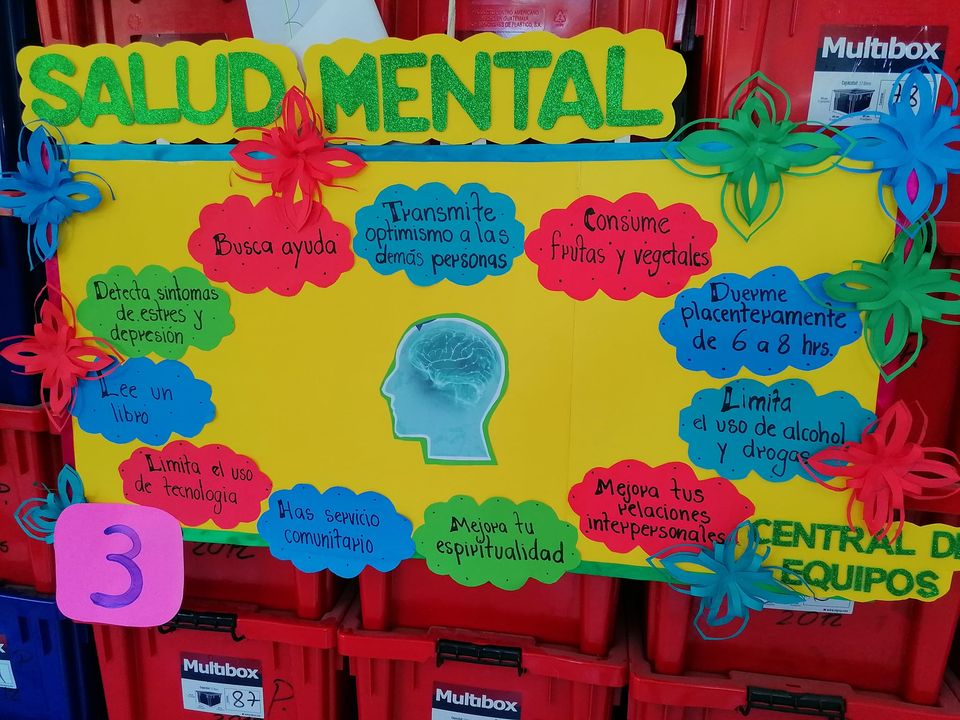 SALUD MENTAL
Busca ayuda
Transmite
optimismo a las
demás personas
Consume
frutas y vegetales
Detecta sintomas
de estres y
depresión
Duerme
placenteramente
de 6 a 8 hrs.
Lee un
libro
Limita
el uso de alcohol
y drogas
Limita el uso
de tecnologia
Has servicio
comunitario
Mejora tu
espiritualidad
Mejora tus
relaciones
interpersonales
CENTRAL DE
EQUIPOS
3
Multibox
78
Multibox
87
P.
Multibox
2012